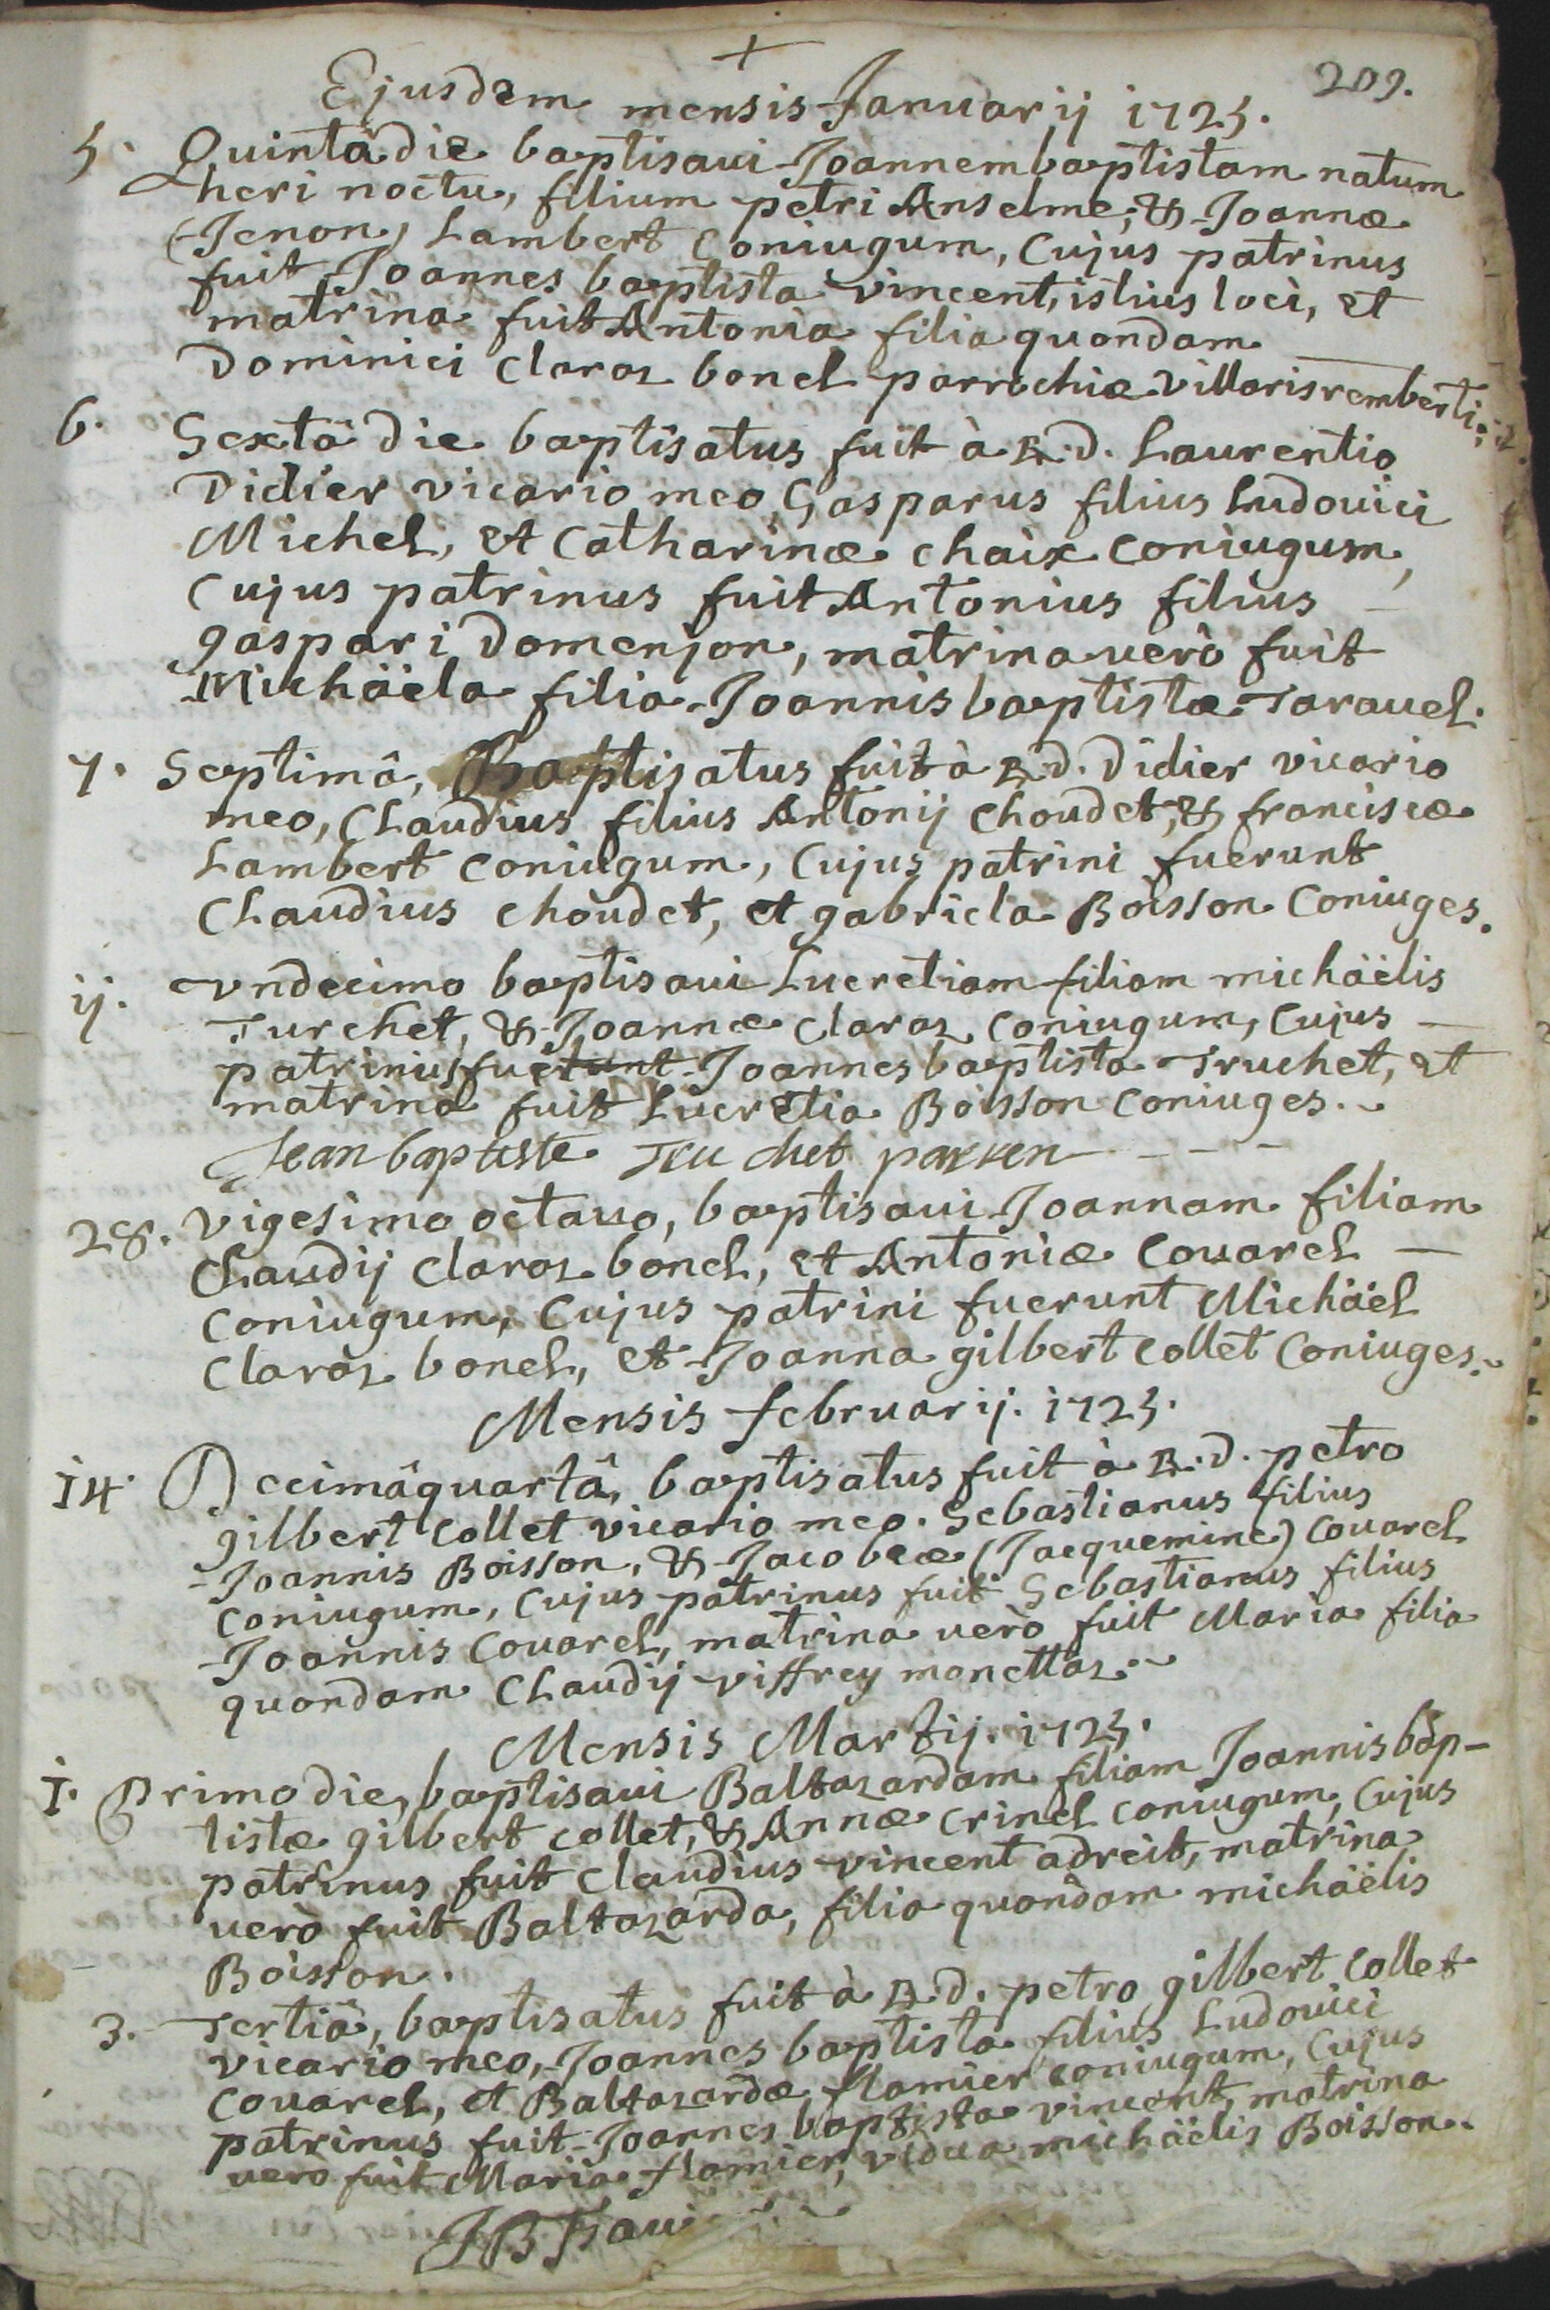 +
209.
Ejusdem mensis Januarij 1725.
5. Quintâ die baptisaui Joannem baptistam natum
heri noctu, filium petri Anselme, & Joannæ
(Jenon) Lambert Coniugum, Cujus patrinus
fuit Joannes baptista vincent, istius loci, et
matrina fuit Antonia filia quondam
Dominici Claraz bonel parrochiæ Villarisremberti;
6. Sextâ die baptisatus fuit à R.d. Laurentio
Didier vicario meo, Gasparus filius Ludouici
Michel, et Catharinæ chaix Coniugum,
Cujus patrinus fuit Antonius filius —
gaspari Domenjon, matrina uerò fuit
Michäela filia Joannis baptistæ Tarauel.
7. Septimâ, Baptisatus fuit à R.d. Didier vicario
meo, Claudius filius Antonij Choudet, & franciscæ
Lambert Coniugum, Cujus patrini fuerunt
Claudius choudet, et gabriela Boisson Coniuges.
ij. vndecima baptisaui Lucretiam filiam michäelis
Turchet, & Joannæ Claraz Coniugum, Cujus —
patrinus fuerunt Joannes baptista Truchet, et
matrina fuit Lucretia Boisson Coniuges.
Jean baptiste Tru chet parren - - - -
28. vigesima octaua, baptisaui Joannam filiam
Claudij Claraz bonel, et Antoniæ Couarel —
Coniugum, Cujus patrini fuerunt Michäel
Claraz bonel, et Joanna gilbert Collet Coniuges.
Mensis februarij. 1725.
14. Decimâquartâ, baptisatus fuit à R.d. petro
gilbert Collet vicario meo. Sebastianus filius
Joannis Boisson, & Jacobeæ (Jacquemine) Couarel
Coniugum, Cujus patrinus fuit Sebastianus filius
Joannis Couarel, matrina uerò fuit Maria filia
quondam Claudij viffrey monettaz.
Mensis Martij. 1725.
1. Prima die, baptisaui Baltazardam filiam Joannis bap-
tistæ gilbert Collet, & Annæ Crinel Coniugum, Cujus
patrinus fuit Claudius vincent adreit, matrina
uerò fuit Baltazarda, filia quondam michäelis
Boisson.
3. Tertiâ, baptisatus fuit à R.d. petro gilbert Collet
vicario meo, Joannes baptista filius Ludouici
Couarel, et Baltazardæ flamier Coniugum, Cujus
patrinus fuit Joannes baptista vincent, matrina
uero fuit Maria flamier, vidua michäelis Boisson.